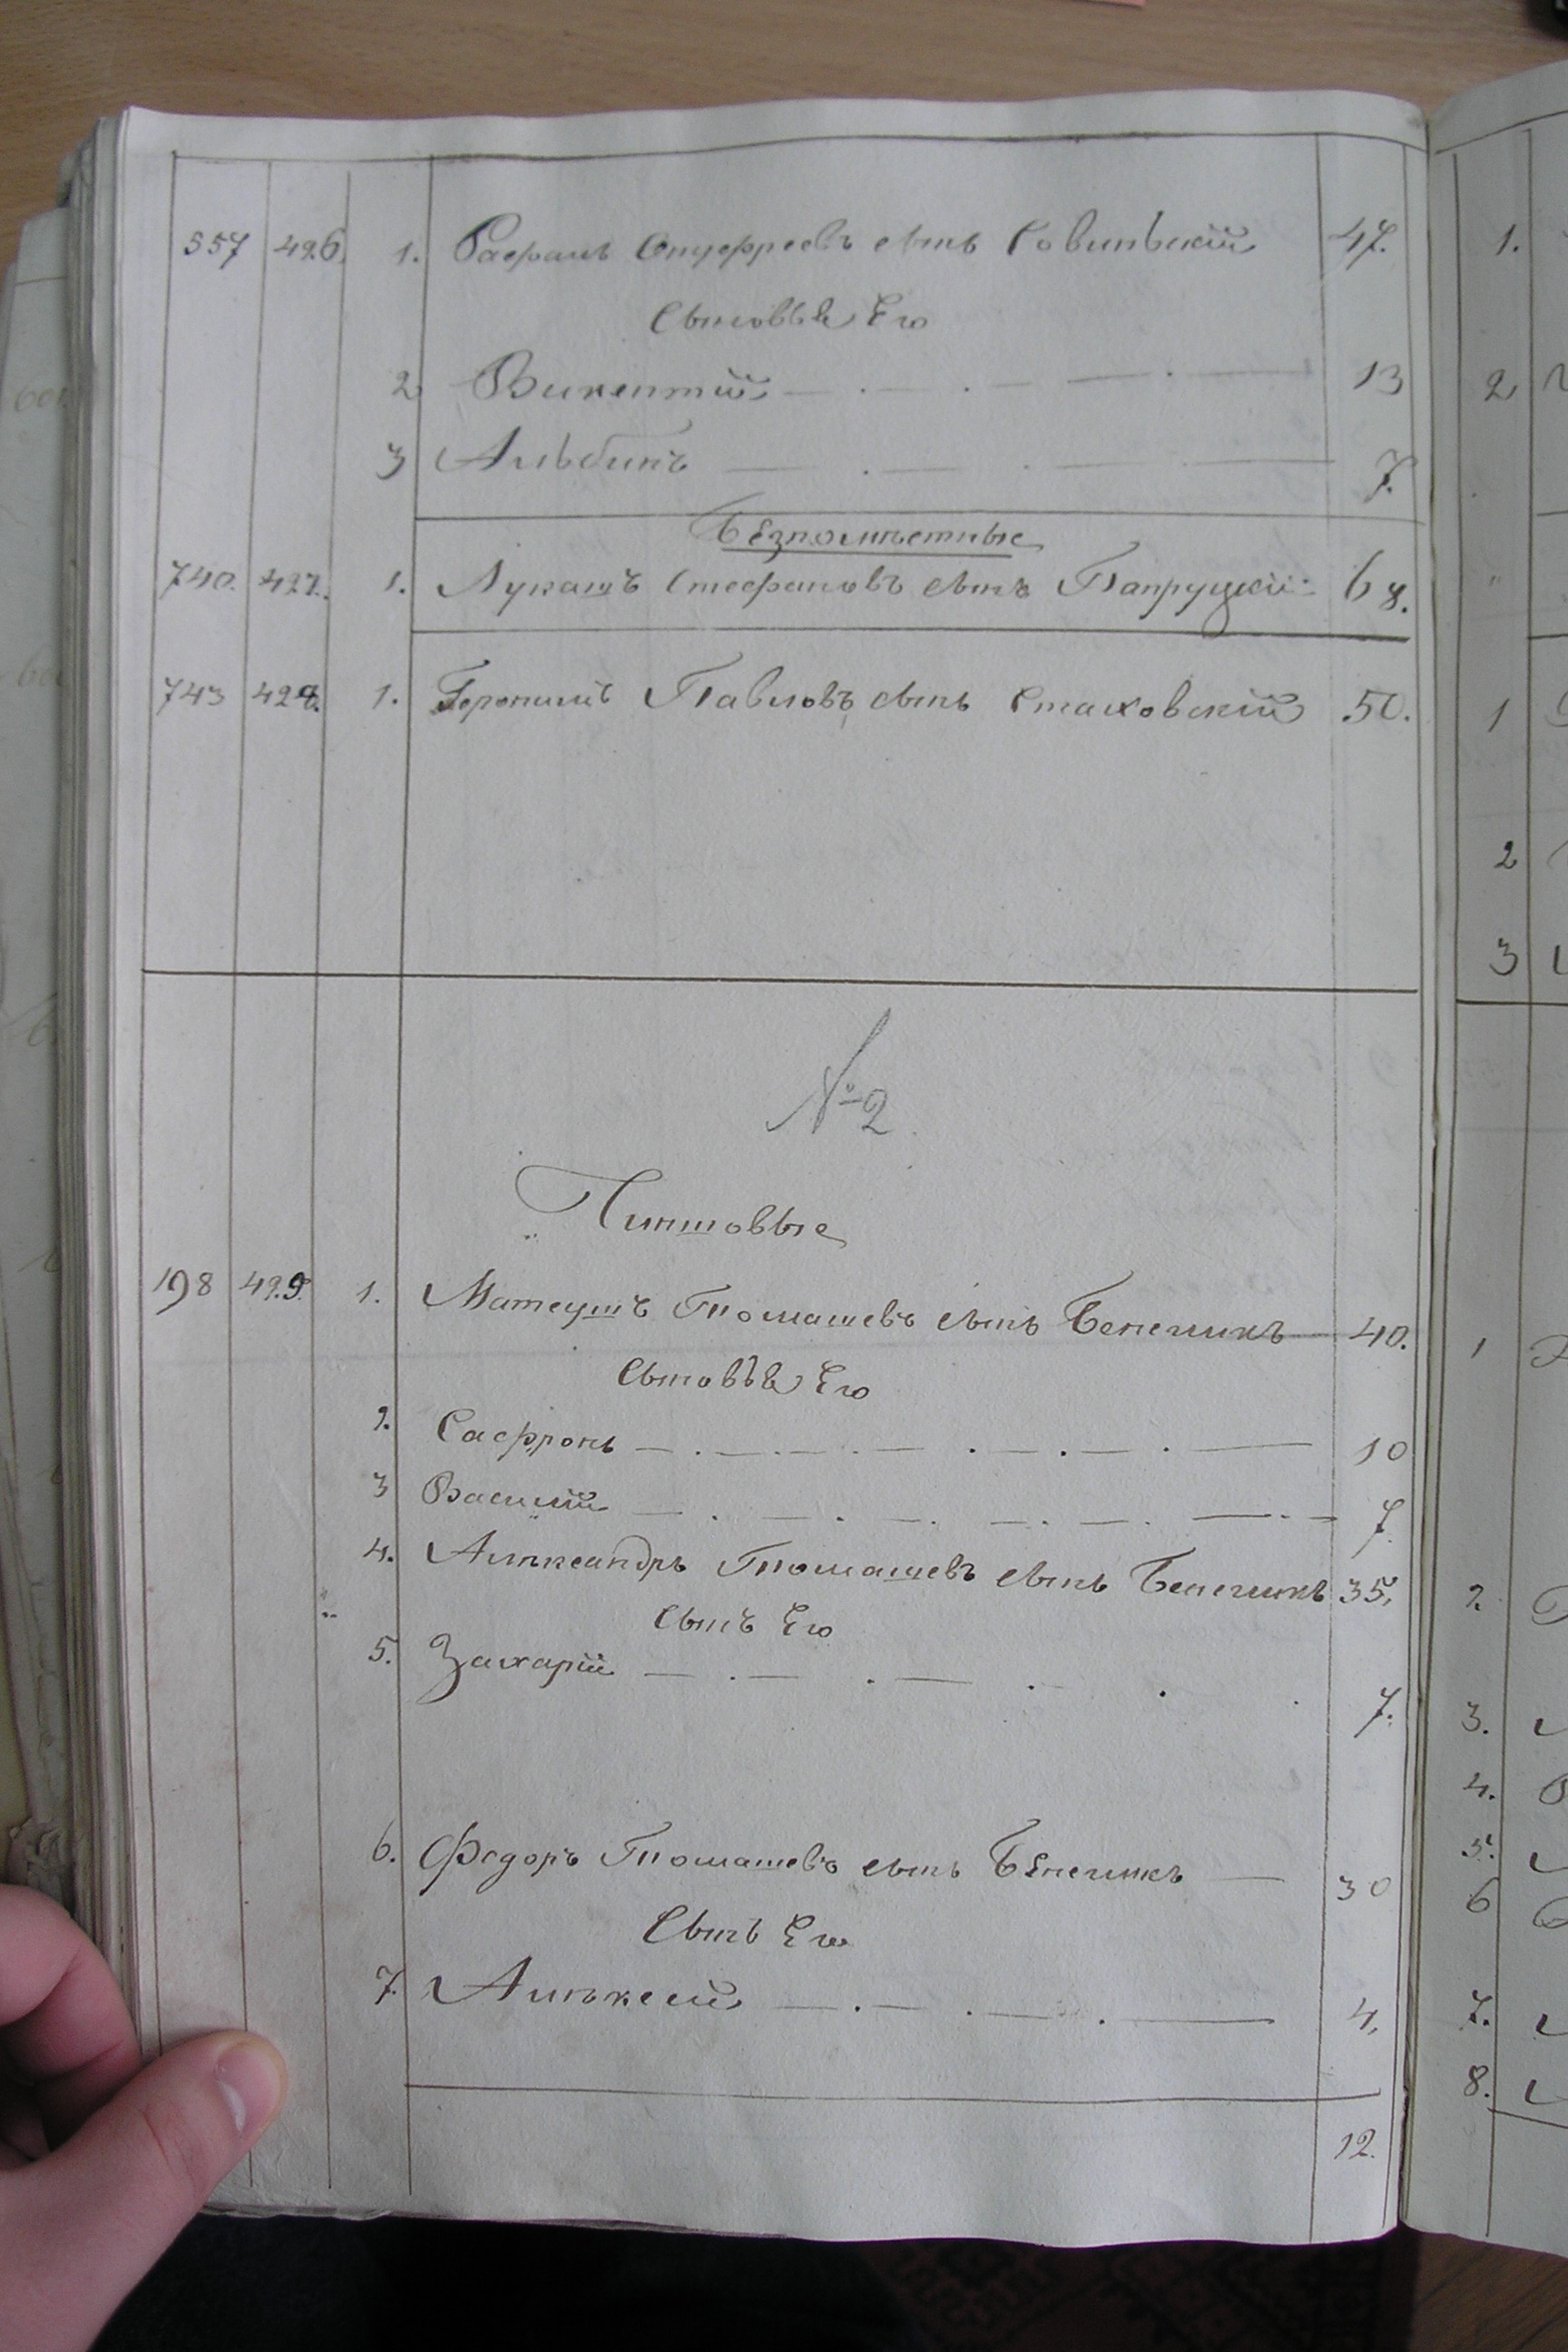 557 496. 1. Рафалъ Онуфреевъ сынъ Совинскій 47.
Сыновья Его
2 Викентій 13
3 Альбинъ 7.
Безпомѣстные
740. 497. 1. Лукашъ Стефановъ сынъ Папруцкій 68.
743 498. 1. Героним Павловъ сынъ Стаховскій 50.
№ 2
Чиншовые
198 499. 1. Матеушъ Томашевъ сынъ Бенегикъ 40.
Сыновья Его
2. Сафронъ 10
3 Василій 7.
4. Алѣксандръ Томашевъ сынъ Бенегикъ 35.
Сынъ Его
5. Захарій 7.
6. Федоръ Томашевъ сынъ Бенегикъ 30
Сынъ Его
7. Алѣксей 4.
12.
1.
2
1
2
3
1
2.
3.
4.
5.
6
7.
8.